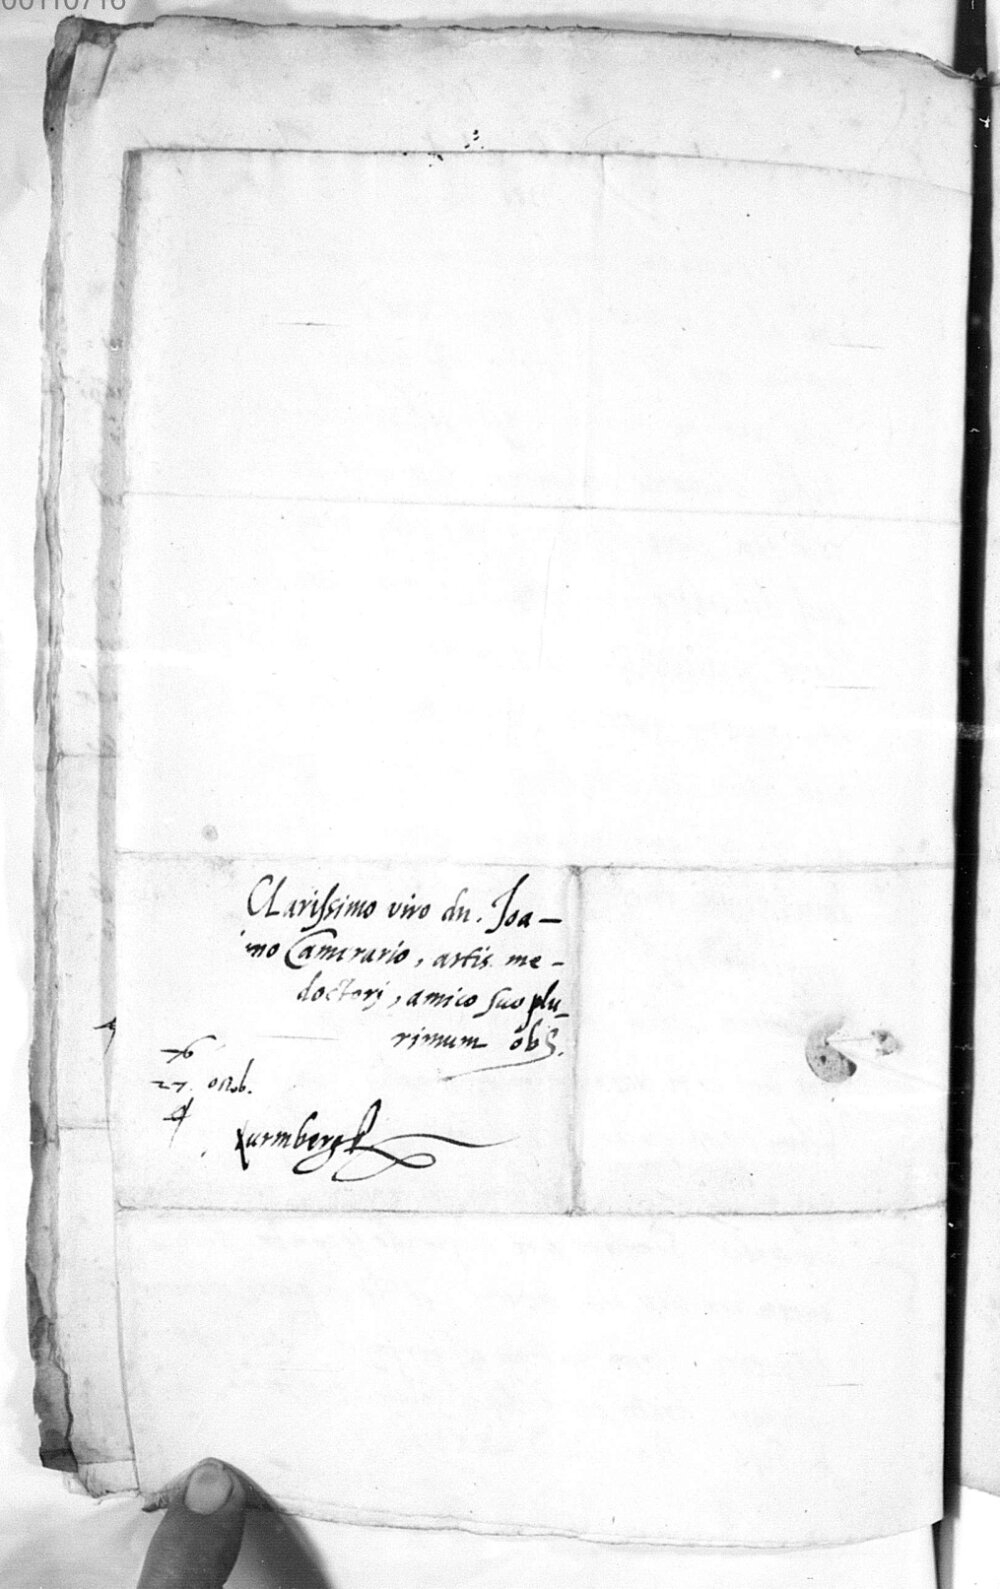 00110716
Clarissimo viro dn. Joa–
imo Camerario, artis me–
doctorj, amico suo plu_
rimum obs.
76
27. octob.
4
Nurmbergk